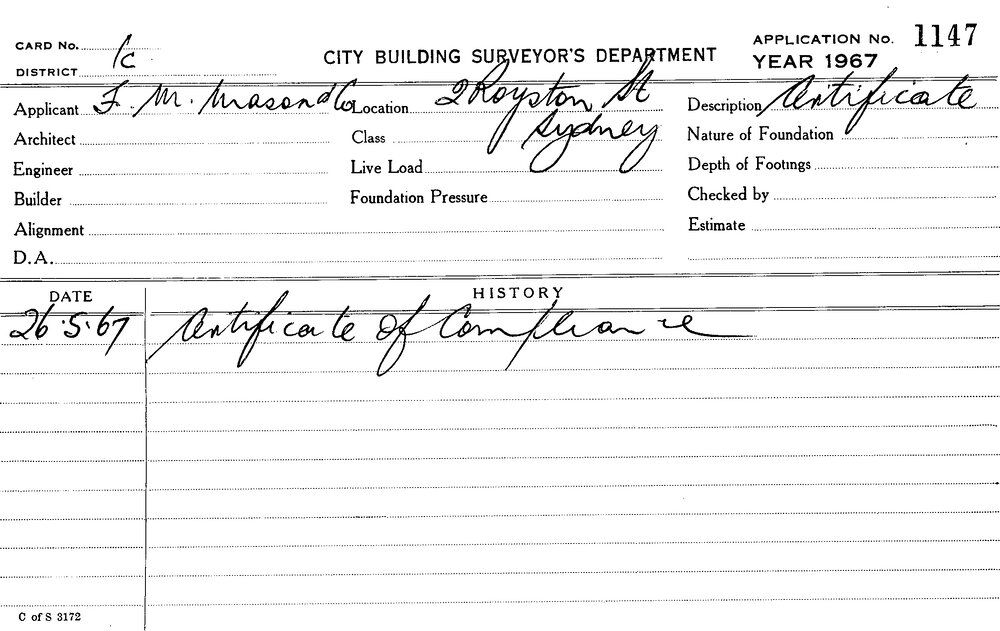 CARD No. 1c
DISTRICT
CITY BUILDING SURVEYOR'S DEPARTMENT
APPLICATION No. 1147
YEAR 1967
Applicant F. M. Mason & Co
Location 2 Royston St
Sydney
Description Certificate
Architect
Class
Nature of Foundation
Engineer
Live Load
Depth of Footings
Builder
Foundation Pressure
Checked by
Alignment
Estimate
D.A.
DATE HISTORY
26.5.67 Certificate of Compliance
C of S 3172